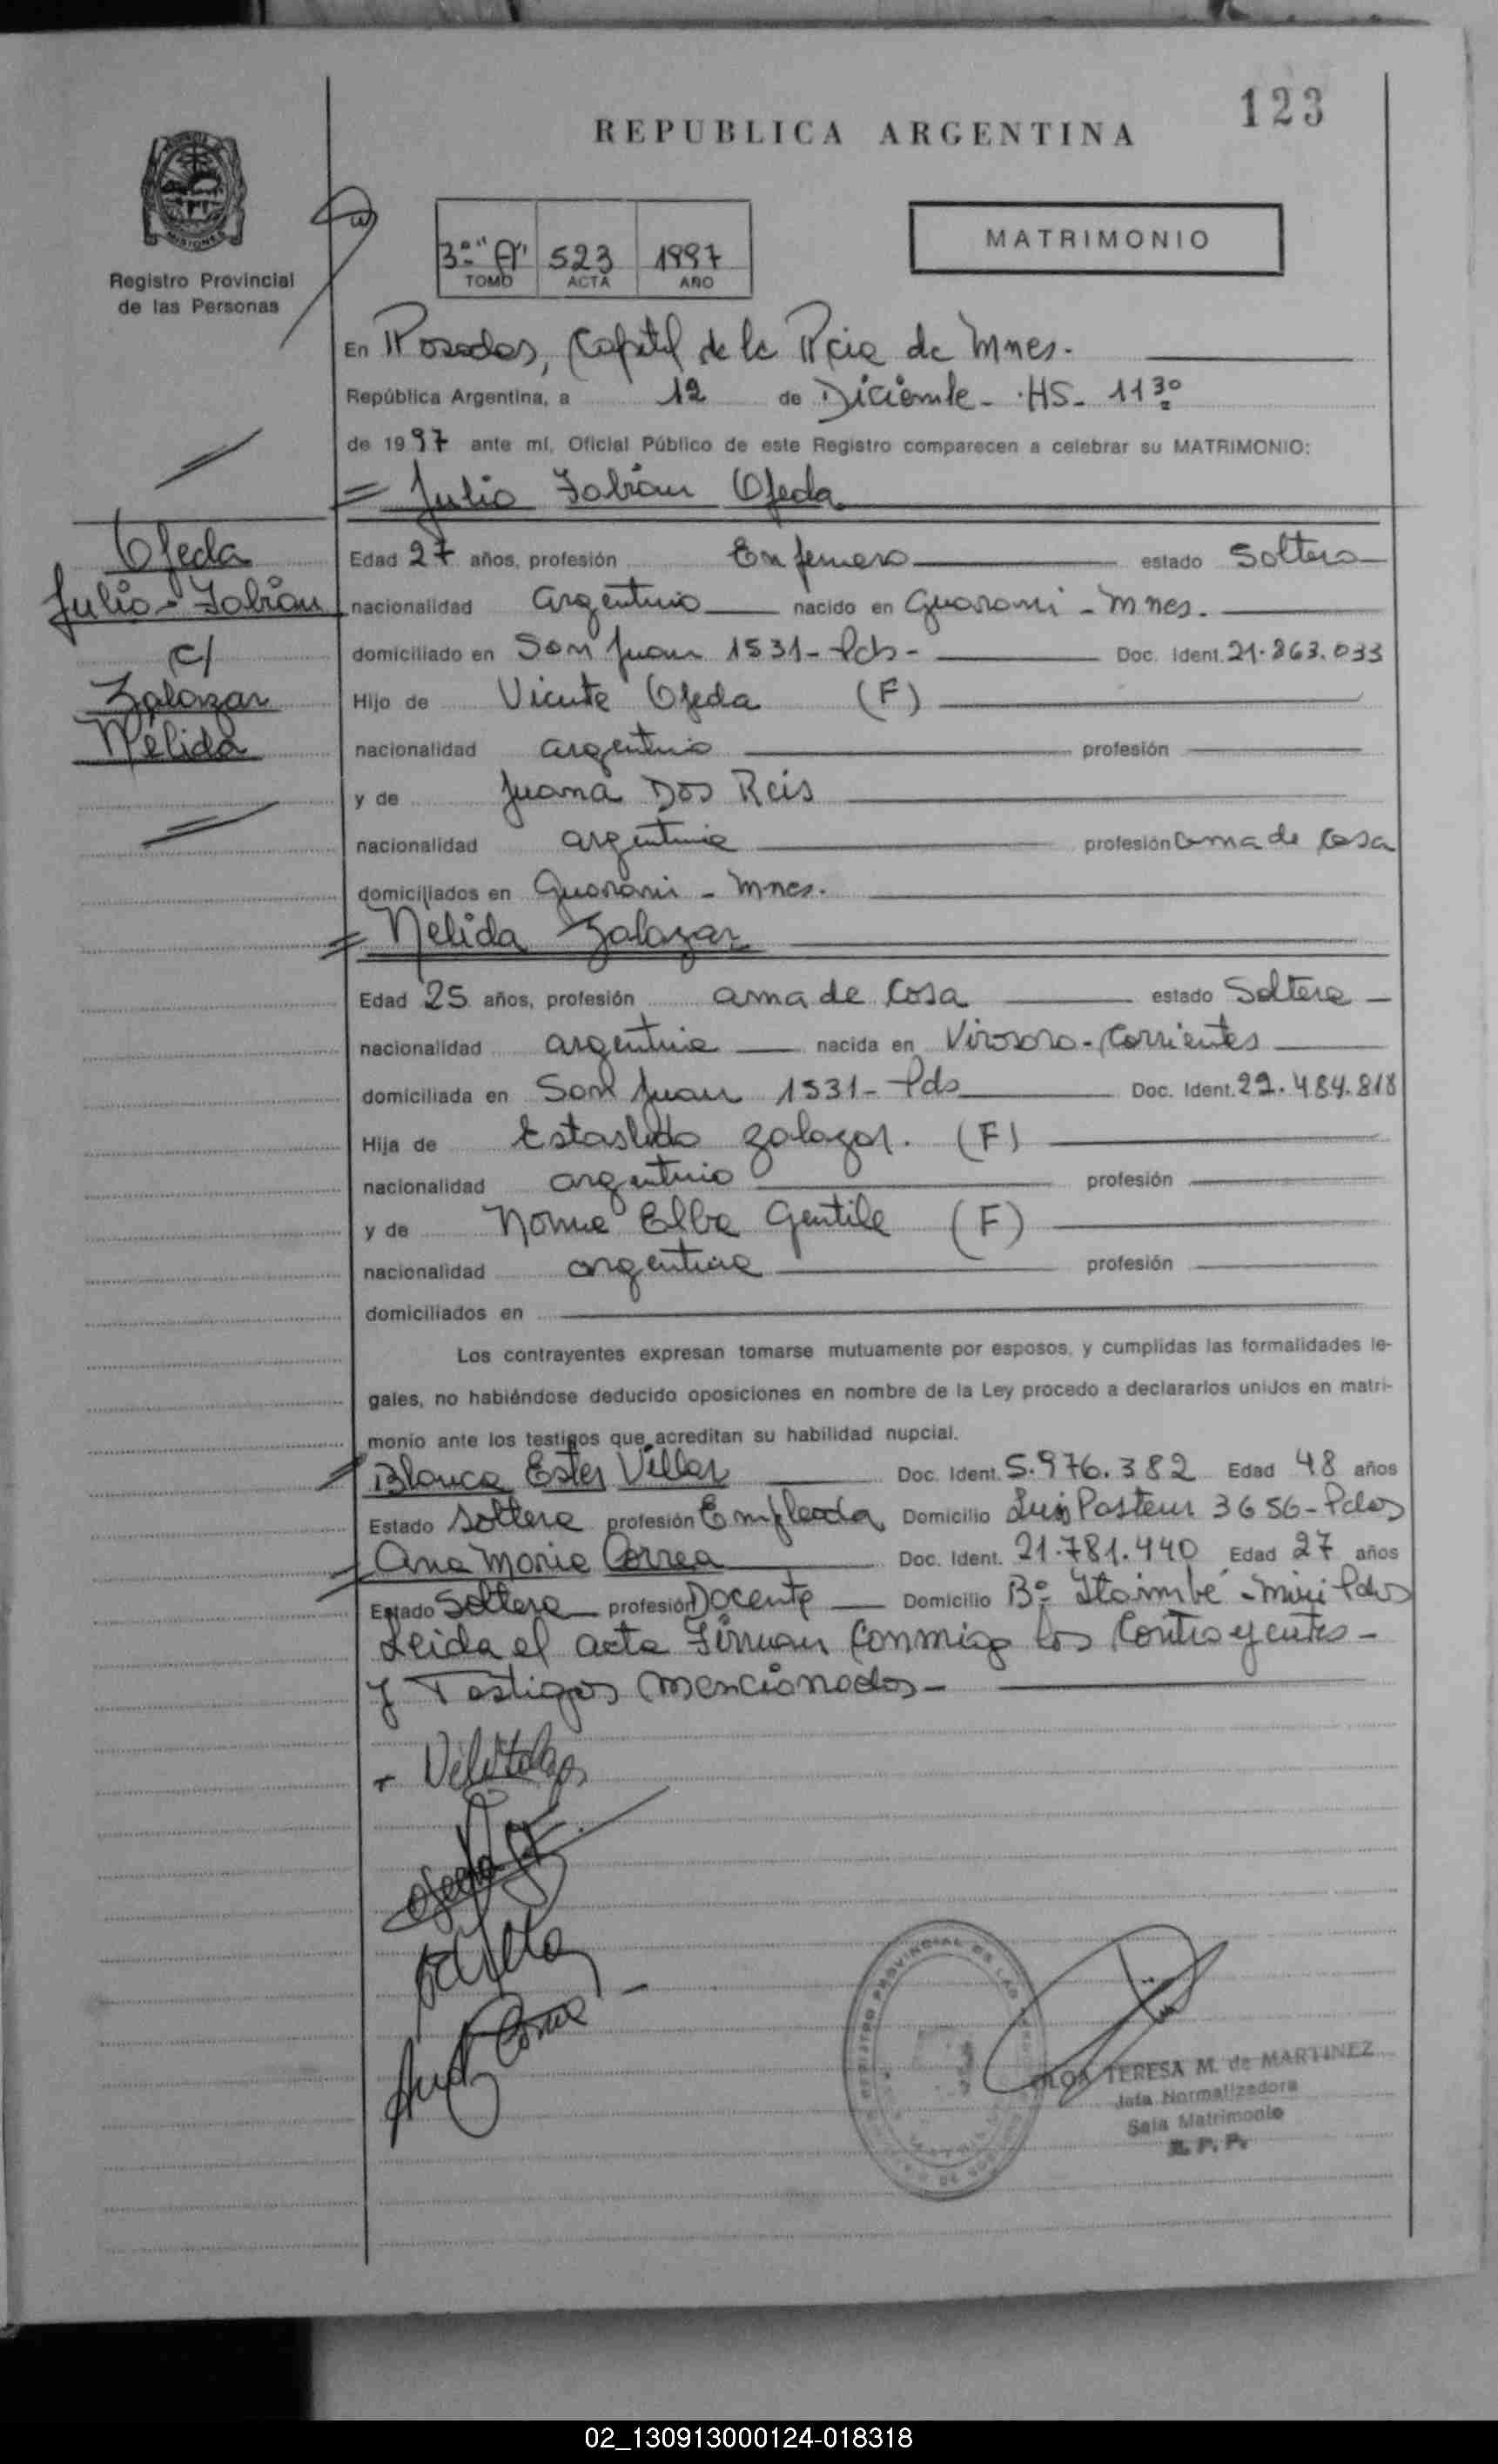 123
REPUBLICA ARGENTINA
MISIONES
Registro Provincial
de las Personas
3º "A" 523 1997
TOMO ACTA AÑO
MATRIMONIO
En Posadas, Capital de la Pcia de Mnes.
República Argentina, a 12 de Diciembre - HS - 11 30
de 1997 ante mí, Oficial Público de este Registro comparecen a celebrar su MATRIMONIO:
= Julio Fabián Ojeda
Ojeda
Julio - Fabián
c/
Zalazar
Nélida
Edad 27 años, profesión Enfermero estado Soltero
nacionalidad argentino nacido en Guaraní - Mnes.
domiciliado en San Juan 1531 - Pds - Doc. Ident. 21.863.033
Hijo de Vicente Ojeda (F)
nacionalidad argentino profesión
y de Juana Dos Reis
nacionalidad argentina profesión ama de casa
domiciliados en Guaraní - Mnes.
= Nélida Zalazar
Edad 25 años, profesión ama de casa estado Soltera
nacionalidad argentina nacida en Virasoro - Corrientes
domiciliada en San Juan 1531 - Pds Doc. Ident. 22.484.818
Hija de Zalazar. (F)
nacionalidad argentino profesión
y de Norma Elba Gentile (F)
nacionalidad argentina profesión
domiciliados en
Los contrayentes expresan tomarse mutuamente por esposos, y cumplidas las formalidades le-
gales, no habiéndose deducido oposiciones en nombre de la Ley procedo a declararlos unidos en matri-
monio ante los testigos que acreditan su habilidad nupcial.
= Blanca Ester Villar Doc. Ident. 5.976.382 Edad 48 años
Estado Soltera profesión Empleada Domicilio Luis Pasteur 3656 - Pdas
= Ana Maria Correa Doc. Ident. 21.781.440 Edad 27 años
Estado Soltera profesión Docente Domicilio Bº Itaimbé - Miní Pdas
Leida el acta Firman conmigo los Contrayentes -
y Testigos mencionados -
TERESA M. de MARTINEZ
Jefa Normalizadora
Sala Matrimonio
R. P. P.
02_130913000124-018318